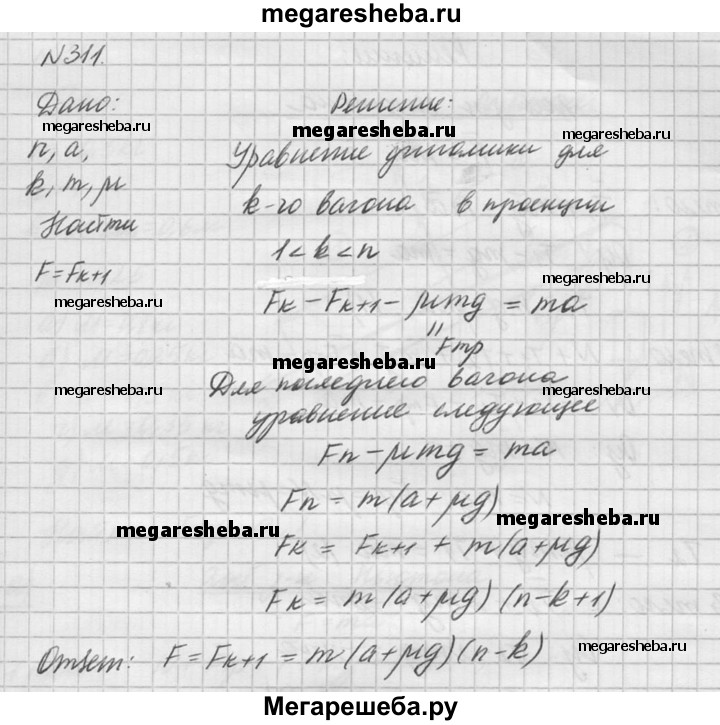 megaresheba.ru
N311.
Дано:
Решение:
megaresheba.ru
megaresheba.ru
megaresheba.ru
n, a,
k, m, μ
Уравнение динамики для
k-го вагона в проекции
Найти
1 < k < n
F = Fk+1
megaresheba.ru
megaresheba.ru
Fk - Fk+1 - μmg = ma
||
Fтр
megaresheba.ru
megaresheba.ru
megaresheba.ru
Для последнего вагона
уравнение следующее
Fn - μmg = ma
Fn = m(a+μg)
megaresheba.ru
megaresheba.ru
Fk = Fk+1 + m(a+μg)
Fk = m(a+μg)(n-k+1)
Ответ: F = Fk+1 = m(a+μg)(n-k)
Мегарешеба.ру